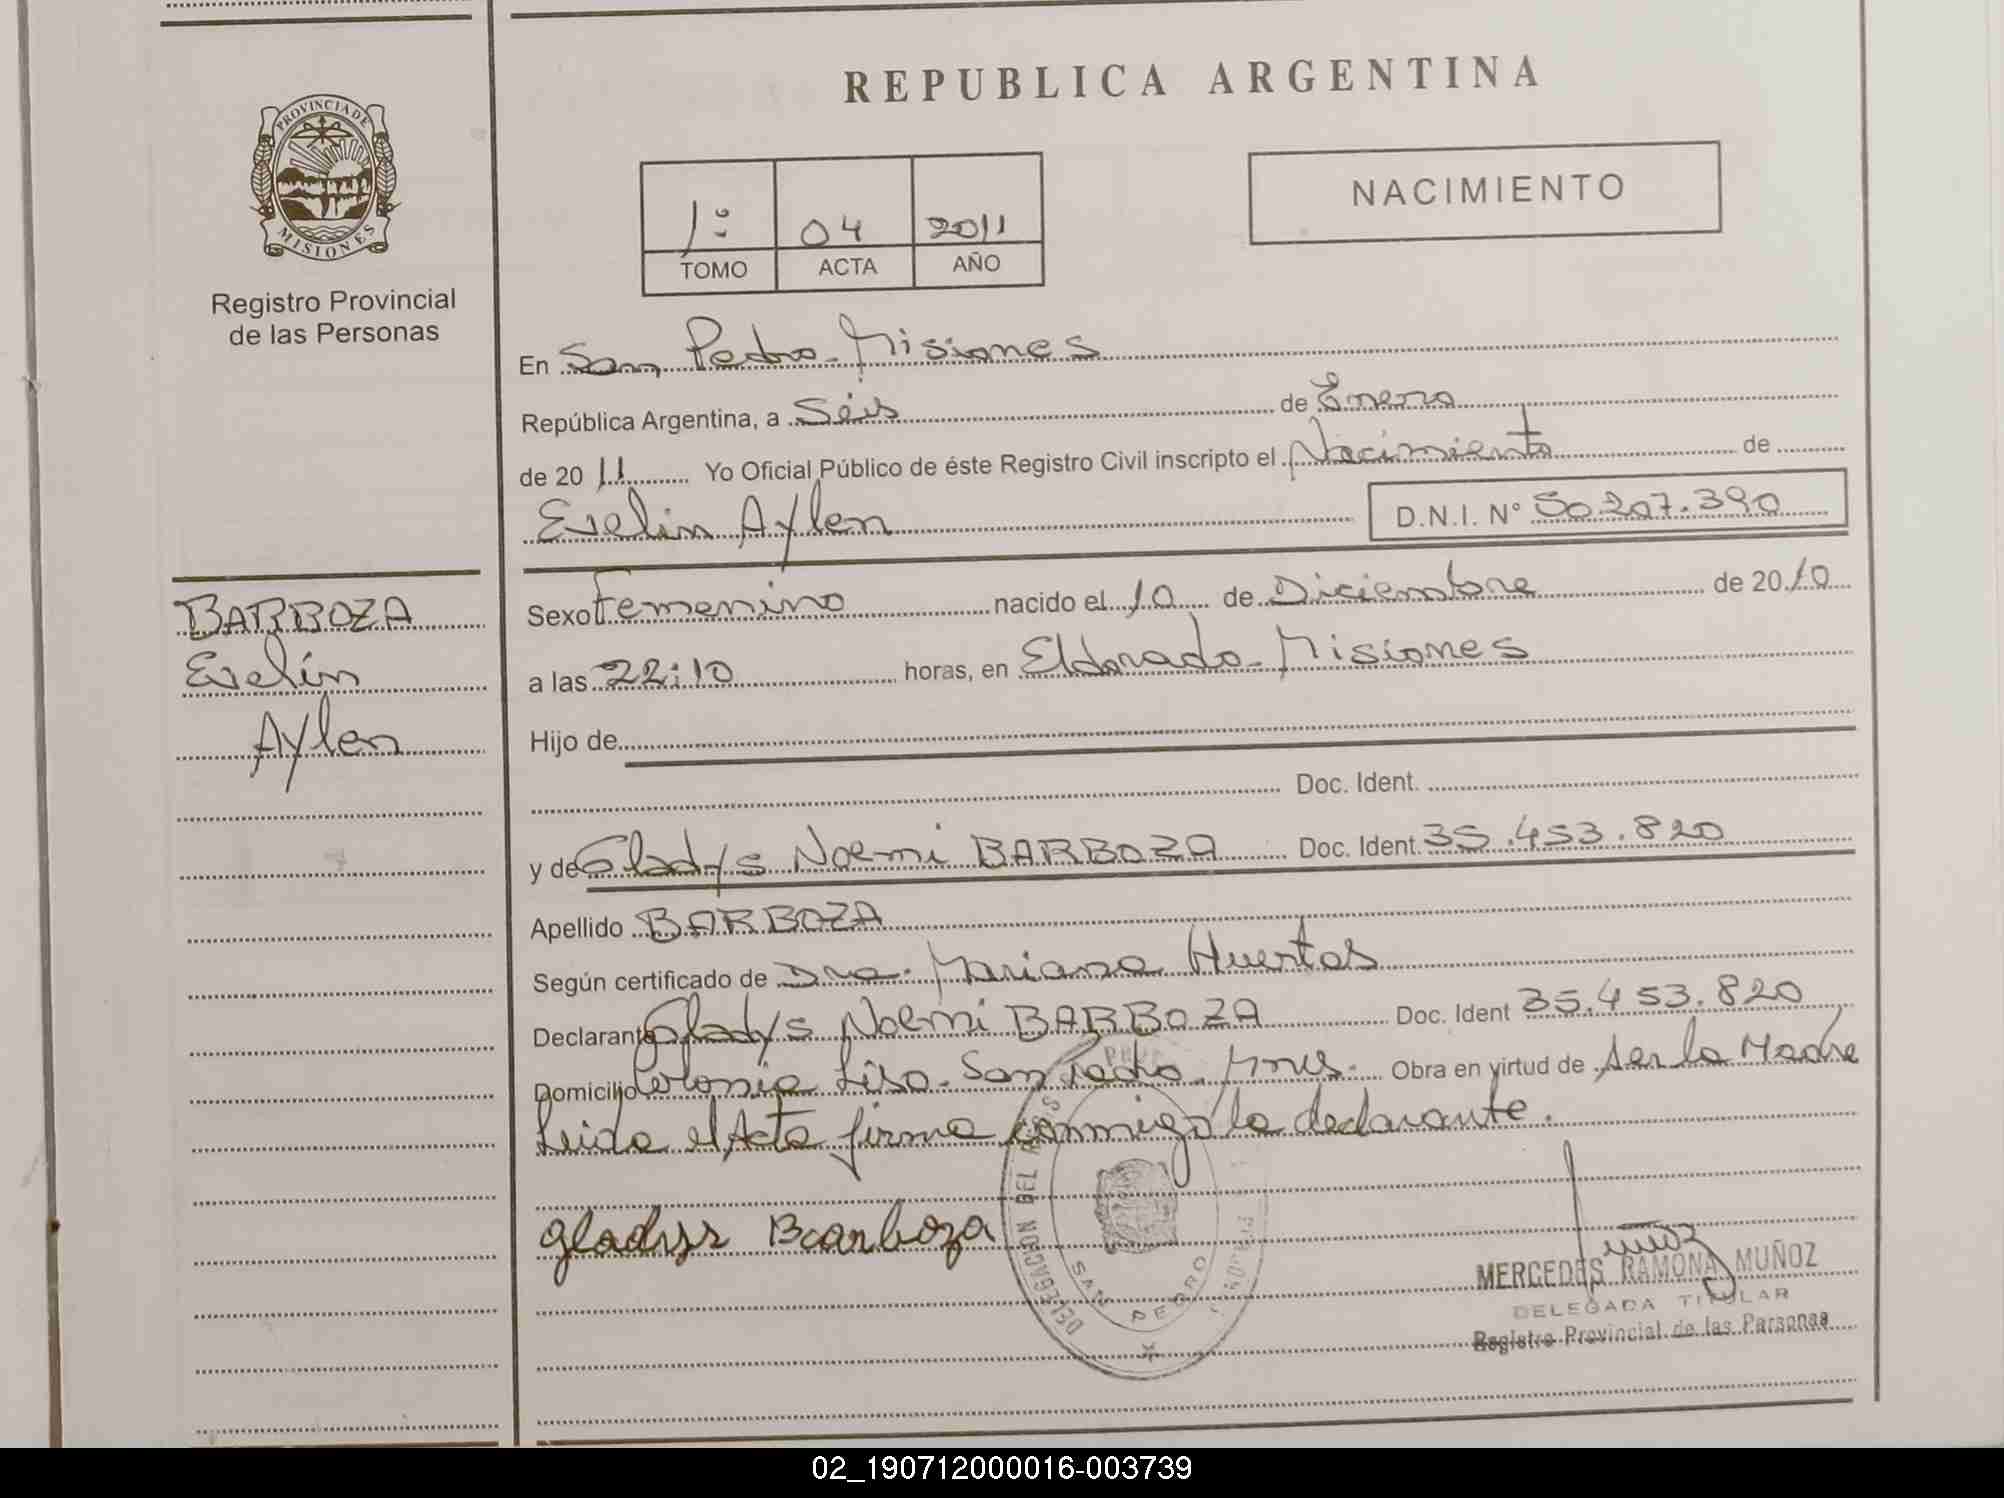 REPUBLICA ARGENTINA
PROVINCIA DE
MISIONES
Registro Provincial
de las Personas
NACIMIENTO
1º 04 2011
TOMO ACTA AÑO
En San Pedro - Misiones
República Argentina, a Séis de Enero
de 2011 Yo Oficial Público de éste Registro Civil inscripto el Nacimiento de
Evelin Aylen D.N.I. Nº 50.207.390
BARBOZA
Evelín
Aylen
Sexo Femenino nacido el 10 de Diciembre de 2010
a las 22:10 horas, en Eldorado - Misiones
Hijo de
Doc. Ident.
y de Gladys Noemi BARBOZA Doc. Ident. 35.453.820
Apellido BARBOZA
Según certificado de Dra. Mariana Huertas
Declarante Gladys Noemi BARBOZA Doc. Ident 35.453.820
Domicilio Colonia Liso - San Pedro - Mnes. Obra en virtud de ser la Madre
Leida el Acta firma conmigo la declarante.
gladys Barboza
DELEGACION DEL
SAN PEDRO
MERCEDES RAMONA MUÑOZ
DELEGADA TITULAR
Registro Provincial de las Personas
02_190712000016-003739